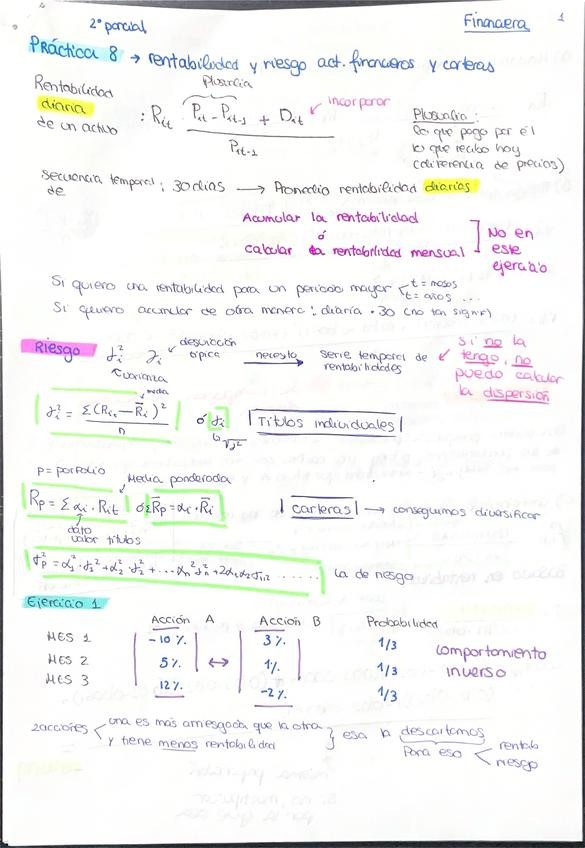 2º parcial
Financiera
1
Práctica 8 → rentabilidad y riesgo act. financieros y carteras
Plusvalía
Rentabilidad
diaria
de un activo
: Rit  Pit - Pit-1 + Dit
Pit-1
incorporar
Plusvalía:
lo que pago por él
lo que recibo hoy
(diferencia de precios)
Secuencia temporal: 30 días → Promedio rentabilidad diarias
de
Acumular la rentabilidad
ó
calcular la rentabilidad mensual
No en
este
ejercicio
Si quiero una rentabilidad para un periodo mayor < t = meses
t = años ...
Si quiero acumular de otra manera: diaria · 30
Riesgo
σi² σi
desviación
típica
varianza
necesito → serie temporal de
rentabilidades
si no la
tengo, no
puedo calcular
la dispersión
media
σi² = Σ(Rit - R̄i)² / n
ó σi
√σ²
Títulos individuales
P = portfolio
Media ponderada
Rp = Σ αi · Rit
ó R̄p = αi · R̄i
dato
valor títulos
carteras → conseguimos diversificar
σp² = α1² · σ1² + α2² · σ2² + ... αn² σn² + 2α1α2σ12 ......
La de riesgo
Ejercicio 1
Acción A Acción B Probabilidad
MES 1 -10 %. 3 %. 1/3
MES 2 5 %. ↔ 1 %. 1/3
MES 3 12 %. -2 %. 1/3
comportamiento
inverso
2 acciones < una es más arriesgada que la otra
y tiene menos rentabilidad } esa la descartamos
Para eso < rentab
riesgo